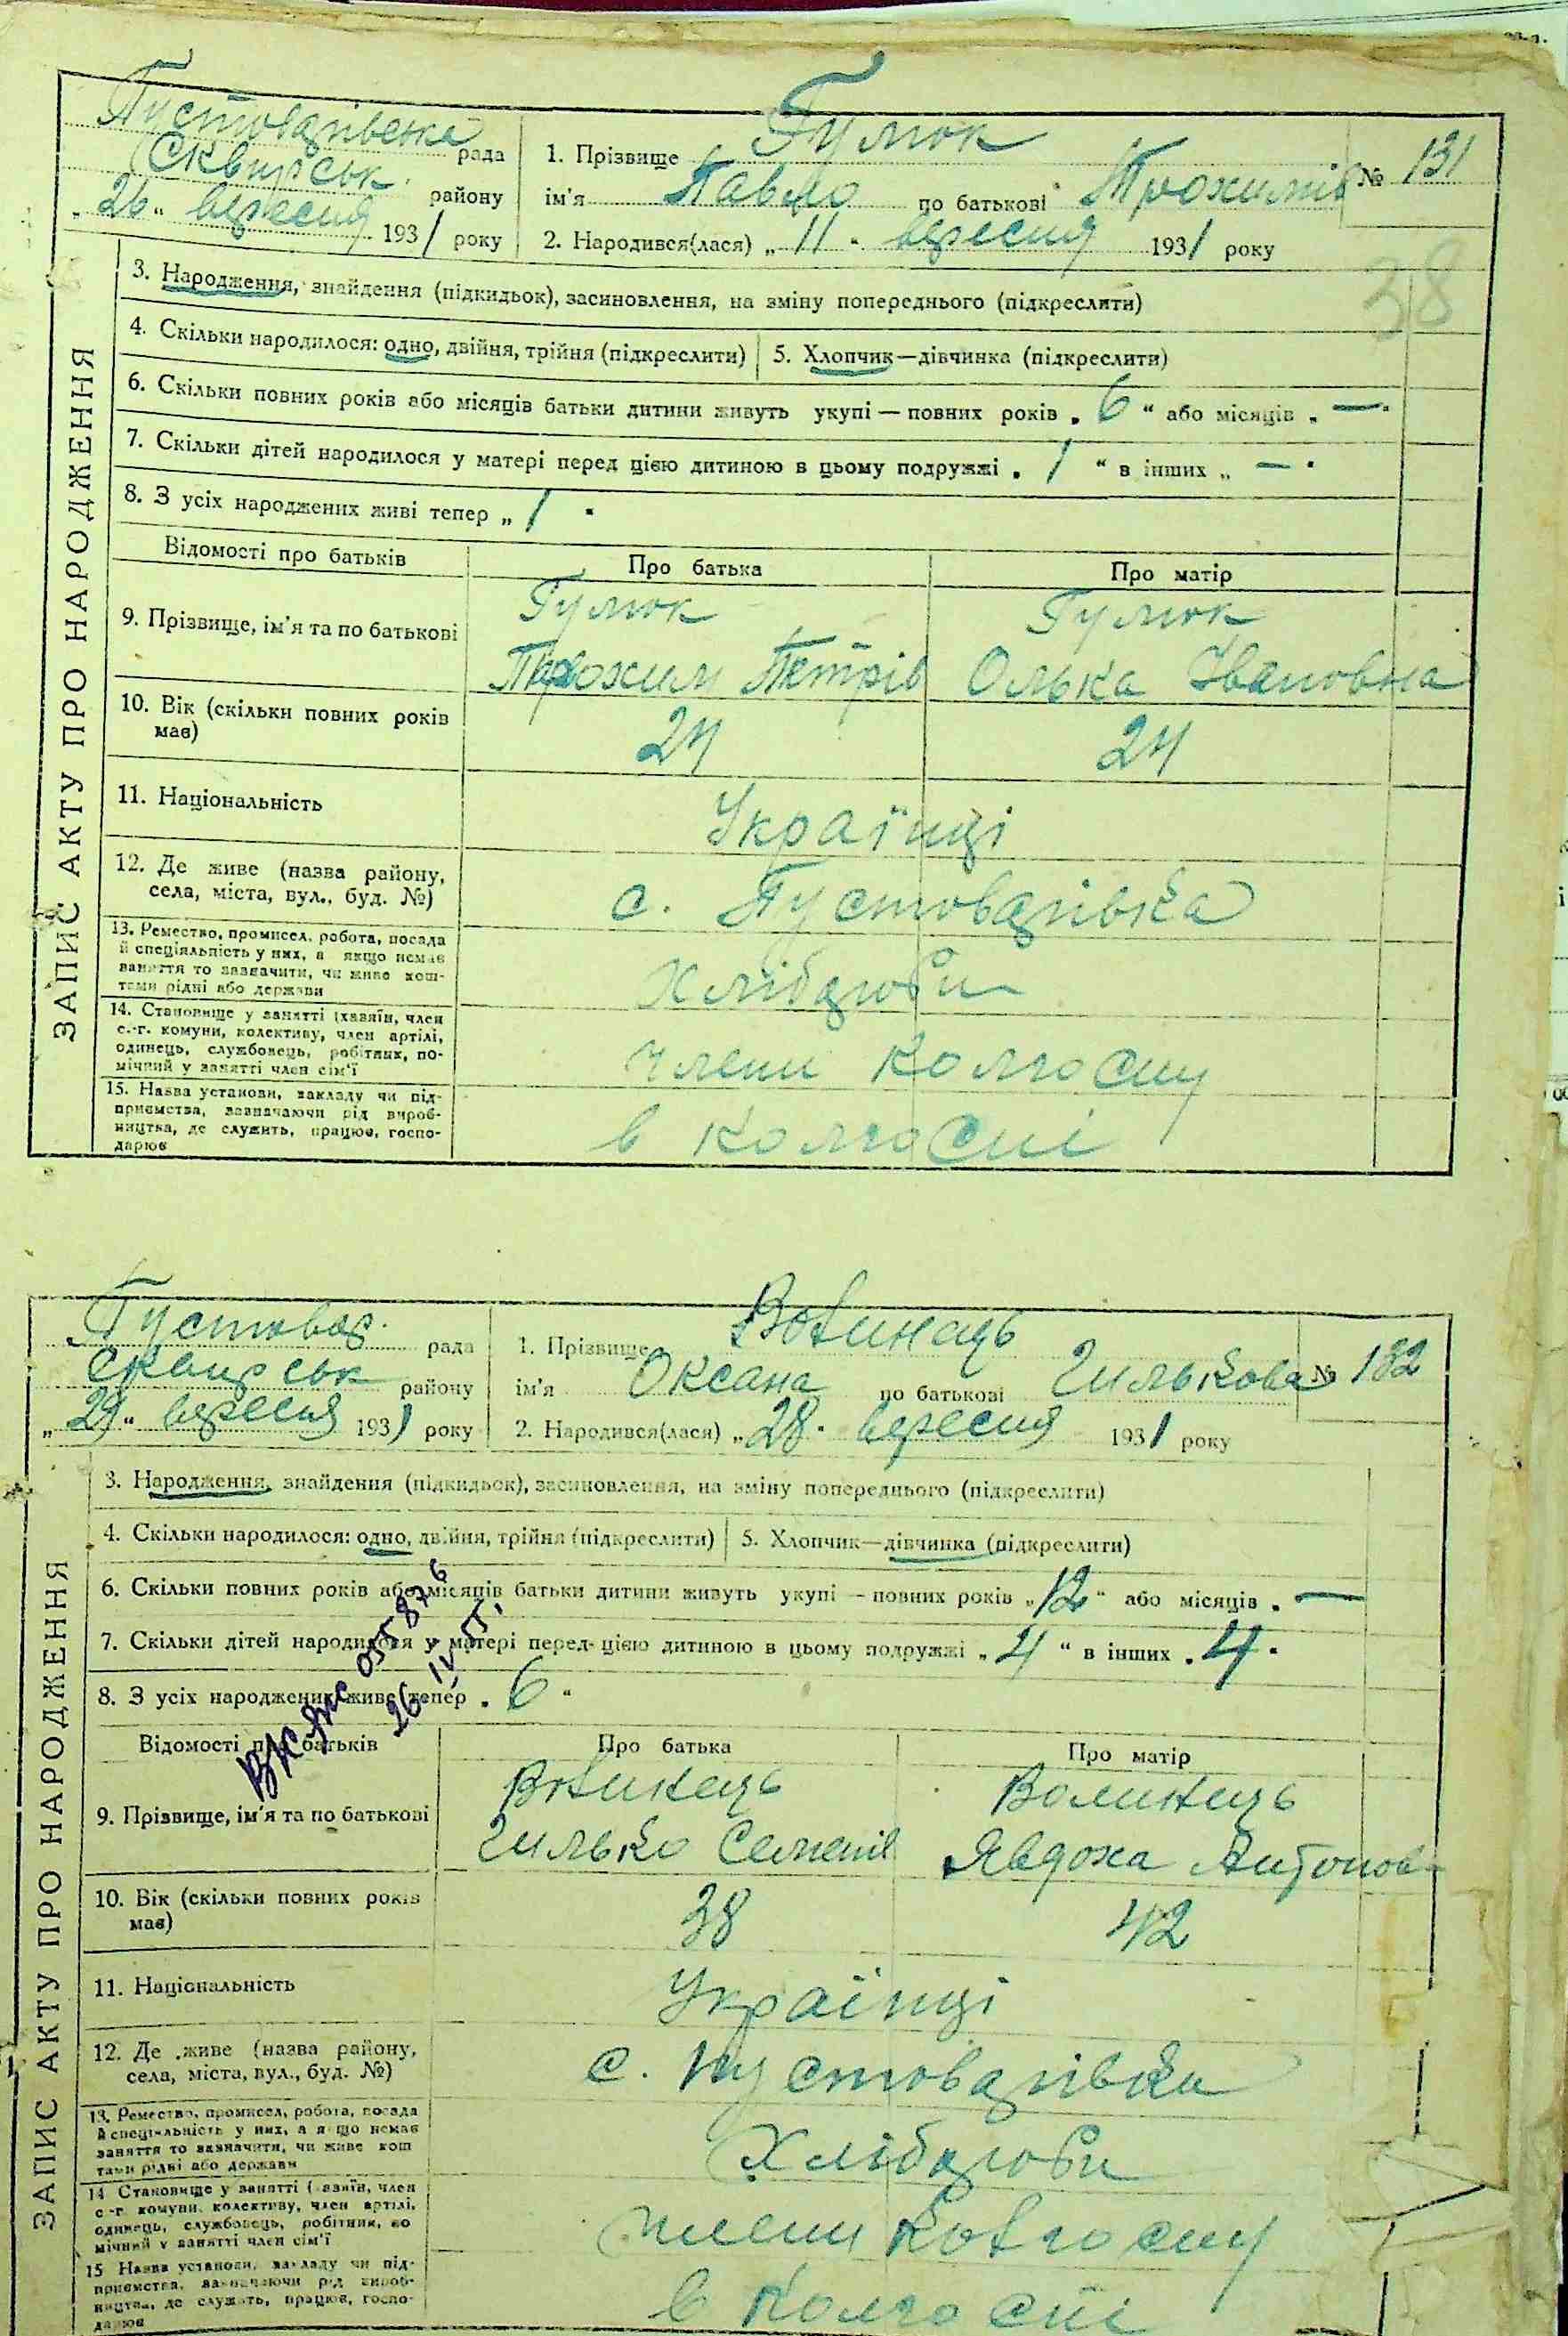 Пустоварівська рада
Сквирськ. району
„26“ вересня 1931 року
1. Прізвище Гулюк
ім'я Павло по батькові Трохимів
№ 131
2. Народився(лася) „11“ вересня 1931 року
38
ЗАПИС АКТУ ПРО НАРОДЖЕННЯ
3. Народження, знайдення (підкидьок), засиновлення, на зміну попереднього (підкреслити)
4. Скільки народилося: одно, двійня, трійня (підкреслити)
5. Хлопчик—дівчинка (підкреслити)
6. Скільки повних років або місяців батьки дитини живуть укупі — повних років „6“ або місяців „—“
7. Скільки дітей народилося у матері перед цією дитиною в цьому подружжі „1“ в інших „—“
8. З усіх народжених живі тепер „1“
Відомості про батьків
Про батька
Про матір
9. Прізвище, ім'я та по батькові
Гулюк
Трохим Петрів
Гулюк
Олька Івановна
10. Вік (скільки повних років
має)
24
24
11. Національність
Українці
12. Де живе (назва району,
села, міста, вул., буд. №)
с. Пустоварівка
13. Ремество, промисел, робота, посада
й спеціяльність у них, а якщо немає
заняття то зазначити, чи живе кош-
тами рідні або держави
Хлібороби
14. Становище у занятті (хазяїн, член
с.-г. комуни, колективу, член артілі,
одинець, службовець, робітник, по-
мічний у занятті член сім'ї
члени колгоспу
15. Назва установи, закладу чи під-
приємства, зазначаючи рід вироб-
ництва, де служить, працює, госпо-
дарює
в колгоспі
Пустовар. рада
Сквирськ району
„29“ вересня 1931 року
1. Прізвище Волинець
ім'я Оксана по батькові Гилькова
№ 132
2. Народився(лася) „28“ вересня 1931 року
ЗАПИС АКТУ ПРО НАРОДЖЕННЯ
3. Народження, знайдення (підкидьок), засиновлення, на зміну попереднього (підкреслити)
4. Скільки народилося: одно, двійня, трійня (підкреслити)
5. Хлопчик—дівчинка (підкреслити)
6. Скільки повних років або місяців батьки дитини живуть укупі — повних років „12“ або місяців „—
7. Скільки дітей народилося у матері перед цією дитиною в цьому подружжі „4“ в інших „4“
8. З усіх народжених живі тепер „6“
Відомості про батьків
Про батька
Про матір
9. Прізвище, ім'я та по батькові
Волинець
Гилько Семенів
Волинець
Явдоха Антонов
10. Вік (скільки повних років
має)
38
42
11. Національність
Українці
12. Де живе (назва району,
села, міста, вул., буд. №)
с. Пустоварівка
13. Ремество, промисел, робота, посада
й спеціяльність у них, а якщо немає
заняття то зазначити, чи живе кош
тами рідні або держави
Хлібороби
14 Становище у занятті (хазяїн, член
с-г. комуни, колективу, член артілі,
одинець, службовець, робітник, по
мічний у занятті член сім'ї
члени колгоспу
15 Назва установи, закладу чи під-
приємства, зазначаючи рід вироб-
ництва, де служить, працює, госпо-
дарює
в колгоспі